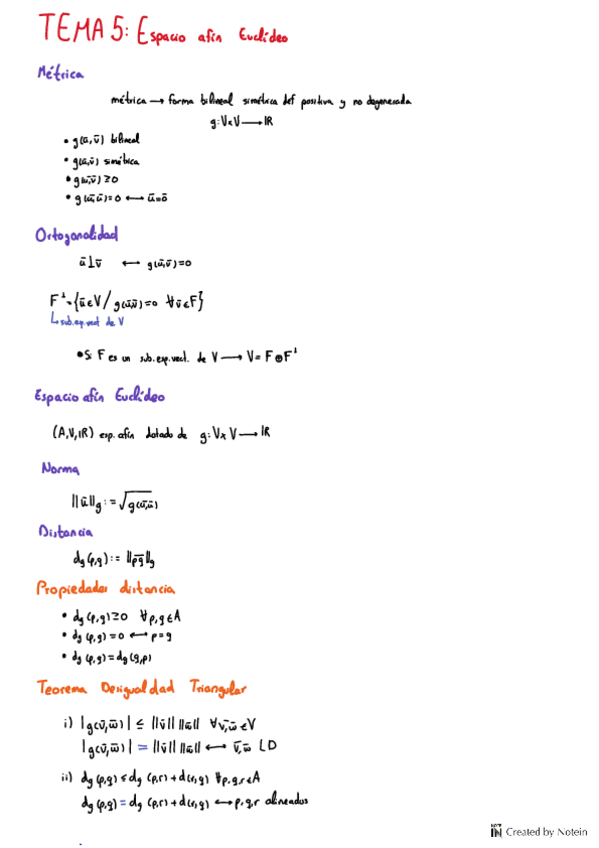 TEMA 5: Espacio afín Euclídeo
Métrica
métrica → forma bilineal simétrica def positiva y no degenerada
g: V x V → IR
• g(ū, v̄) bilineal
• g(ū, v̄) simétrica
• g(ū, v̄) ≥ 0
• g(ū, ū) = 0 ↔ ū = ō
Ortogonalidad
ū ⊥ v̄ ↔ g(ū, v̄) = 0
F⊥ = {ū ∈ V / g(ū, v̄) = 0 ∀ v̄ ∈ F}
↳ sub.esp.vect de V
• Si F es un sub.esp.vect. de V → V = F ⊕ F⊥
Espacio afín Euclídeo
(A, V, IR) esp. afín dotado de g: V x V → IR
Norma
||ū||g := √g(ū, ū)
Distancia
dg (p, q) := ||p̄q̄||g
Propiedades distancia
• dg (p, q) ≥ 0 ∀ p, q ∈ A
• dg (p, q) = 0 ↔ p = q
• dg (p, q) = dg (q, p)
Teorema Desigualdad Triangular
i) |g(v̄, w̄)| ≤ ||v̄|| ||w̄|| ∀ v̄, w̄ ∈ V
|g(v̄, w̄)| = ||v̄|| ||w̄|| ↔ v̄, w̄ LD
ii) dg (p, q) ≤ dg (p, r) + d(r, q) ∀ p, q, r ∈ A
dg (p, q) = dg (p, r) + d(r, q) ↔ p, q, r alineados
NOTE IN Created by Notein